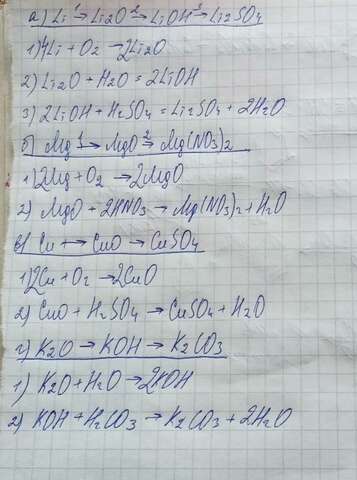 а) Li ¹→ Li2O ²→ LiOH ³→ Li2SO4
1) 4Li + O2 → 2Li2O
2) Li2O + H2O = 2LiOH
3) 2LiOH + H2SO4 = Li2SO4 + 2H2O
б) Mg ¹→ MgO ²→ Mg(NO3)2
1) 2Mg + O2 → 2MgO
2) MgO + 2HNO3 → Mg(NO3)2 + H2O
в) Cu → CuO → CuSO4
1) 2Cu + O2 → 2CuO
2) CuO + H2SO4 → CuSO4 + H2O
г) K2O → KOH → K2CO3
1) K2O + H2O → 2KOH
2) KOH + H2CO3 → K2CO3 + 2H2O